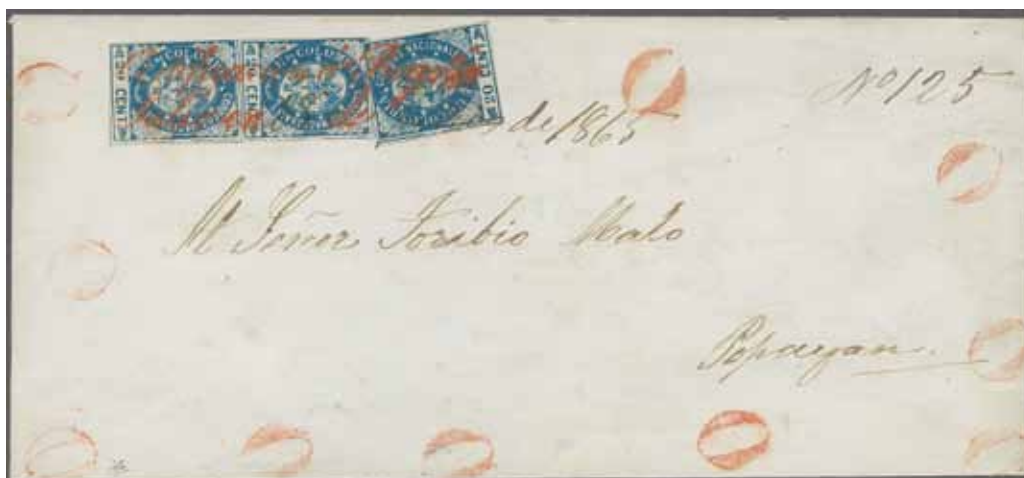 A 20 CENT
A 20 CENT
A 20 CENT
Nº 125
de 1865
Al Señor Toribio Malo
Popayan.